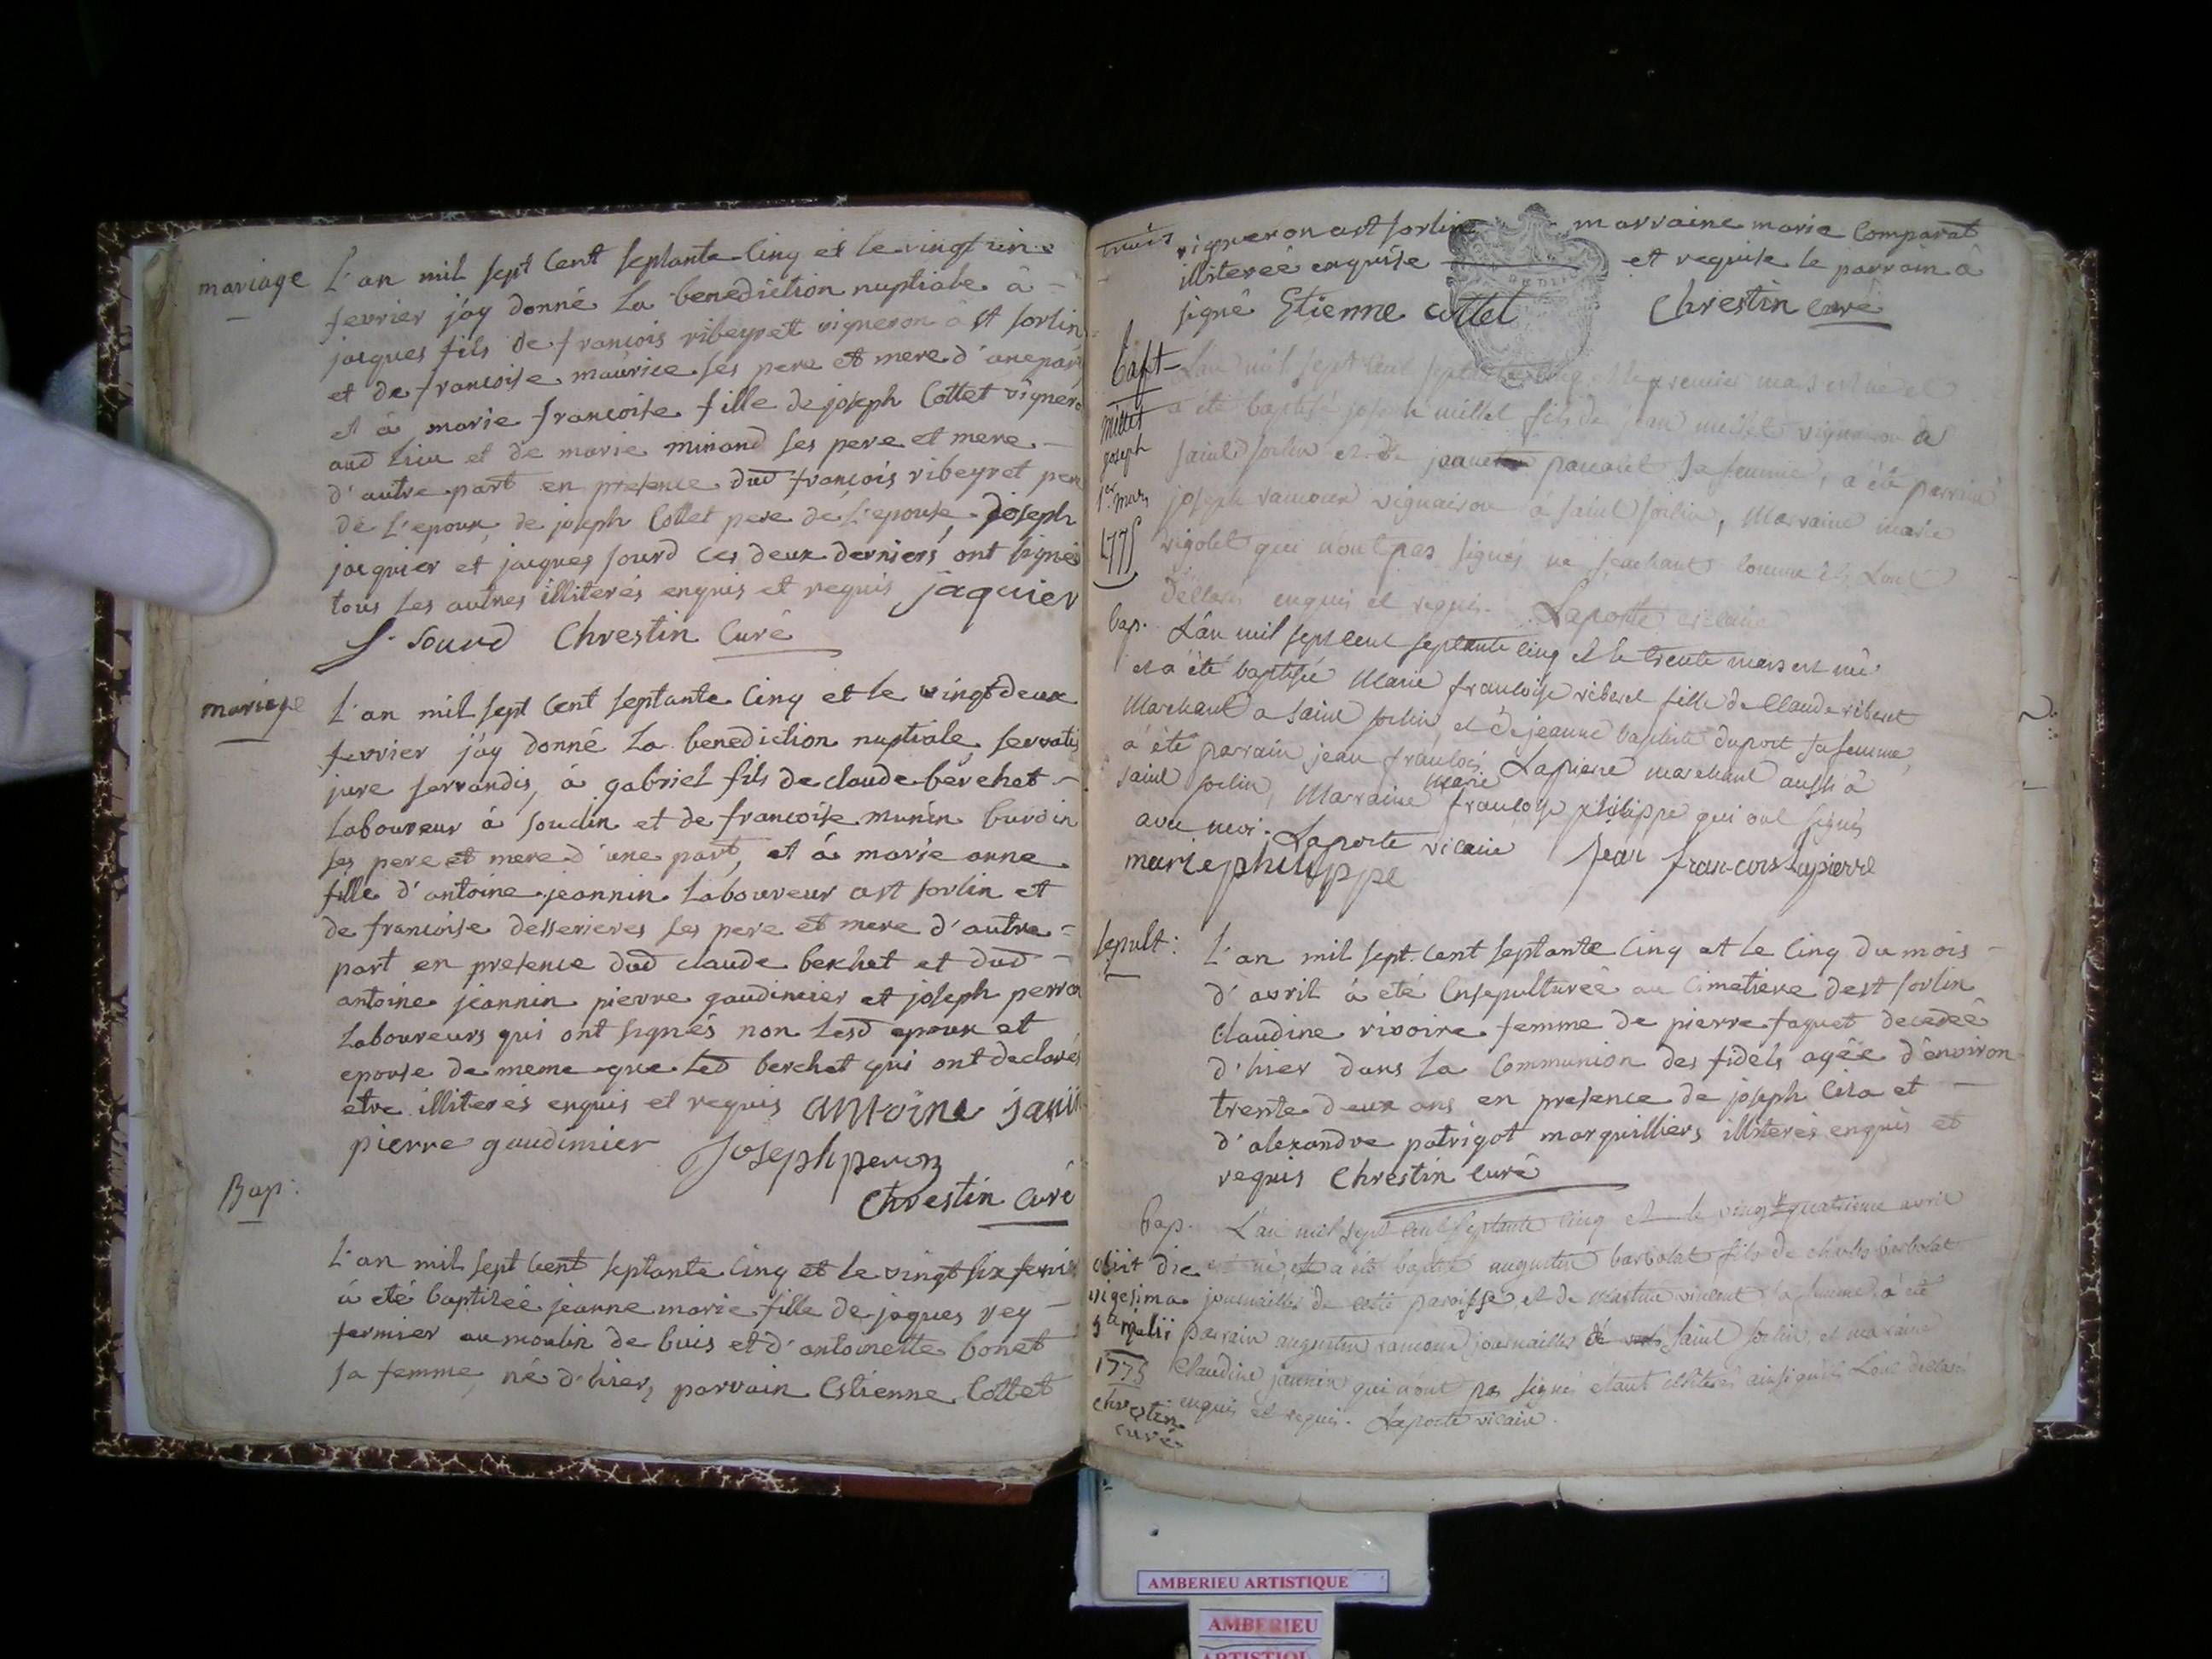 mariage
L'an mil sept Cent septante Cinq et le vingt un e
fevrier j'ay donné La benediction nuptiale à
jacques fils de françois ribeyret vigneron à st sorlin
et de francoise maurice ses pere et mere d'une part
et à marie francoise fille de joseph Cottet vignero
aud Lieu et de marie minand ses pere et mere
d'autre part en presence dud françois ribeyret pere
de L'epoux, de joseph Cottet pere de L'epouse, joseph
jacquier et jacques sourd ces deux derniers ont signés
tous Les autres illiterés enquis et requis jaquier
J. Sourd Chrestin Curé
mariage
L'an mil sept Cent septante Cinq et le vingt deux
fevrier j'ay donné La benediction nuptiale, servatis
jure servandis, à gabriel fils de claude berchet
Laboureur à soudin et de francoise munin burdin
ses pere et mere d'une part, et à marie anne
fille d'antoine jeannin Laboureur a st sorlin et
de francoise desserieres ses pere et mere d'autre
part en presence dud claude berchet et dud
antoine jeannin pierre gaudimier et joseph perron
Laboureurs qui ont signés non Lesd epoux et
epouse de meme que Led berchet qui ont declarés
etre illiterés enquis et requis antoine janin
pierre gaudimier Joseph peron
Chrestin Curé
Bap:
L'an mil sept Cent septante Cinq et le vingt six fevrier
à eté baptisée jeanne marie fille de jaques rey
fermier au moulin de buis et d'antoinette bonet
sa femme, né d'hier, parrain Estienne Cottet
vigneron a st sorlin marraine marie Comparat
illiterée enquise et requise le parrain à
signé Etienne cottet Chrestin Curé
Bapt
millet
joseph
1er mars
1775
L'an mil sept Cent septante Cinq et le premier mars est né et
a été baptisé joseph millet fils de jean millet vigneron à
saint sorlin et de sa femme, a été parrain
joseph ramoux vigneron à saint sorlin, Marraine marie
rigolet qui n'ont pas signés ne sçachant comme ils L'ont
Déclaré enquis et requis. Laporte vicaire
bap.
L'an mil sept cent septante cinq et le trente mars est née
et a été baptisée Marie françoise riberet fille de Claude riberet
Marchand a saint sorlin, et de jeanne baptiste duport sa femme,
a été parrain jean françois Lapierre marchand aussi à
saint sorlin, Marraine marie françoise philippe qui ont signés
avec moi. Laporte vicaire Jean francois Lapierre
marie philippe
sepult:
L'an mil sept Cent septante Cinq et Le Cinq du mois
d'avril à eté Ensepulturée au Cimetiere de st sorlin
Claudine rivoire femme de pierre faguet decedée
d'hier dans La Communion des fidels agée d'environ
trente deux ans en presence de joseph Cira et
d'alexandre patrigot marguilliers illiterés enquis et
requis Chrestin Curé
bap.
obiit die
vigesima
5ta julii
1775
chrestin
curé
L'an mil sept cent septante cinq et le vingt quatrieme avril
est né, et a été baptisé augustin barbolat fils de charles barbolat
journaillier de cette paroisse et de vincent sa femme, a été
parrain augustin ramoux journaillier de saint sorlin, et maraine
Claudine jannin qui n'ont pas signés etant illiterés ainsi qu'ils L'ont déclaré
enquis et requis. Laporte vicaire.
AMBERIEU ARTISTIQUE
AMBERIEU
ARTISTIQU